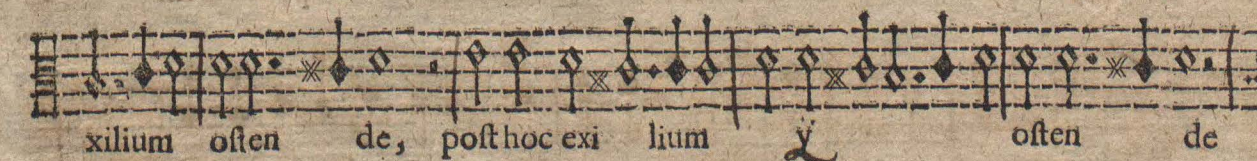 xilium oſten de, poſt hoc exi lium ij oſten de